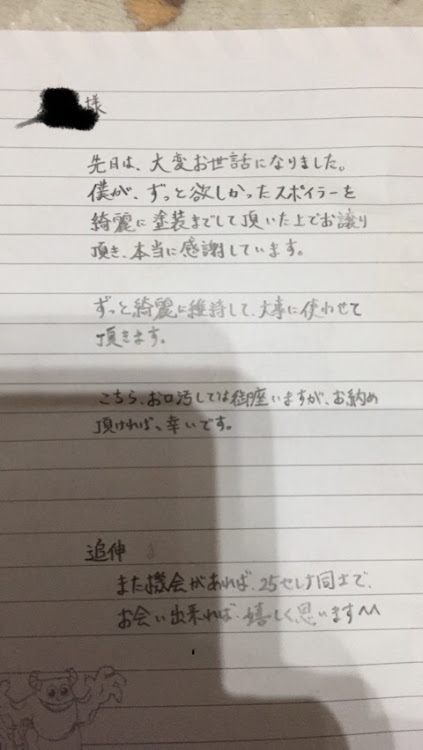 様
先日は、大変お世話になりました。
僕が、ずっと欲しかったスポイラーを
綺麗に塗装までして頂いた上でお譲り
頂き、本当に感謝しています。
ずっと綺麗に維持して、大事に使わせて
頂きます。
こちら、お口汚しでは御座いますが、お納め
頂ければ、幸いです。
追伸
また機会があれば、25セレナ同士で、
お会い出来れば、嬉しく思います^^